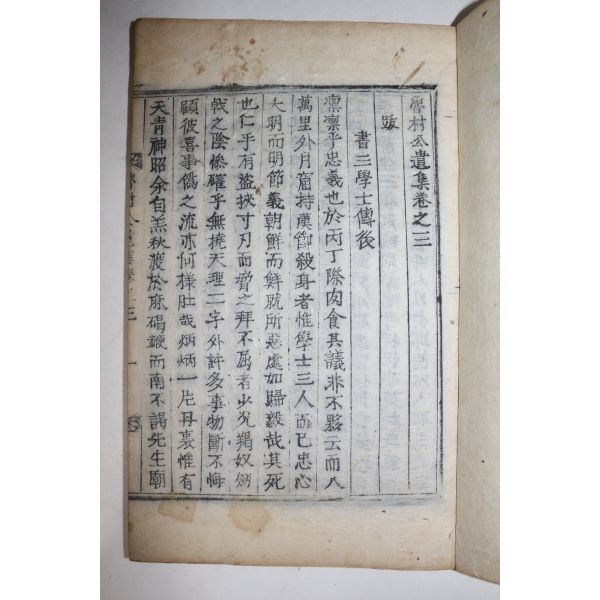 村公遺集卷之三
跋
書三學士傳後
凛凛乎忠義也於丙丁際肉食其議非不夥云而八
萬里外月窟持漢節殺身者惟學士三人而已忠心
大明而明節義朝鮮而鮮就所惡處如歸毅哉其死
也仁乎有盜挾寸刃而脅之拜不屈者少況羯奴炳
戟之陰慘確乎無撓天理二字外許多事物斷不悔
顧彼喜事僞之流亦何樣肚哉炳炳一片再裏惟有
天青神昭余自羔秋渡於麻碣而南不謁先生廟